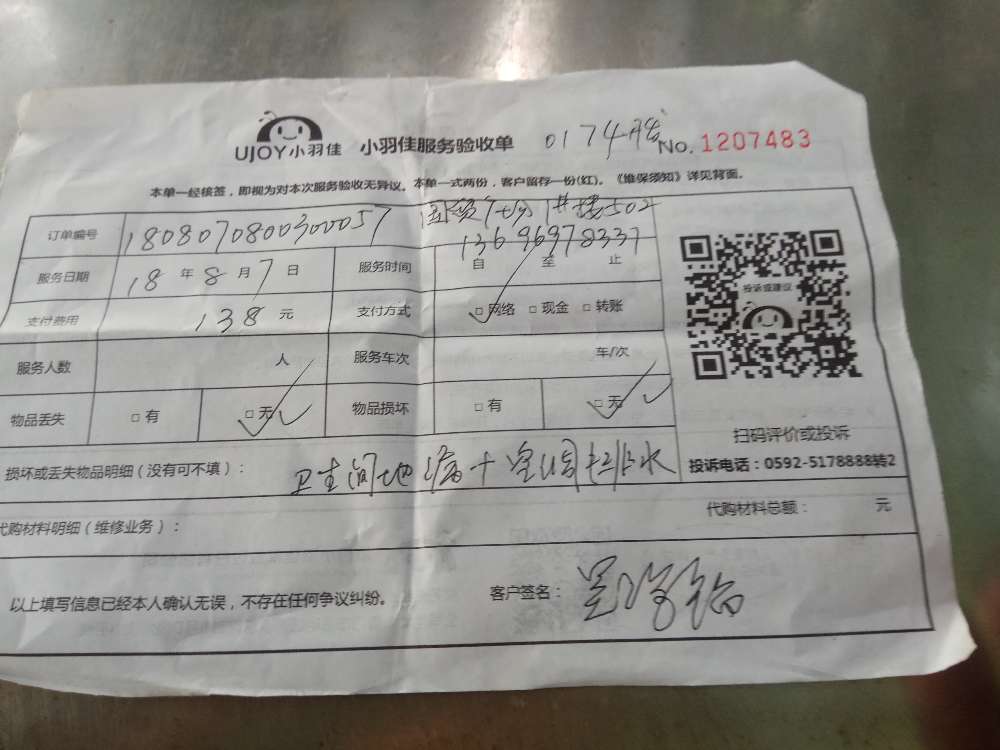 UJOY小羽佳 小羽佳服务验收单 0174 No. 1207483
本单一经核签，即视为对本次服务验收无异议。本单一式两份，客户留存一份(红)。《维保须知》详见背面。
订单编号 180807080030057 1#楼502
13696978337
服务日期 18 年 8 月 7 日 服务时间 自 至 止
支付费用 138 元 支付方式 □网络 □现金 □转账
投诉或建议
服务人数 人 服务车次 车/次
物品丢失 □有 □无 物品损坏 □有 □无
扫码评价或投诉
损坏或丢失物品明细（没有可不填）： 卫生间地漏+空调排水
投诉电话：0592-5178888转2
代购材料明细（维修业务）： 代购材料总额： 元
以上填写信息已经本人确认无误，不存在任何争议纠纷。 客户签名：